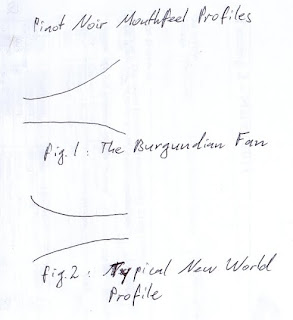 Pinot Noir Mouthfeel Profiles
fig. 1 : The Burgundian Fan
fig. 2 : Typical New World
Profile